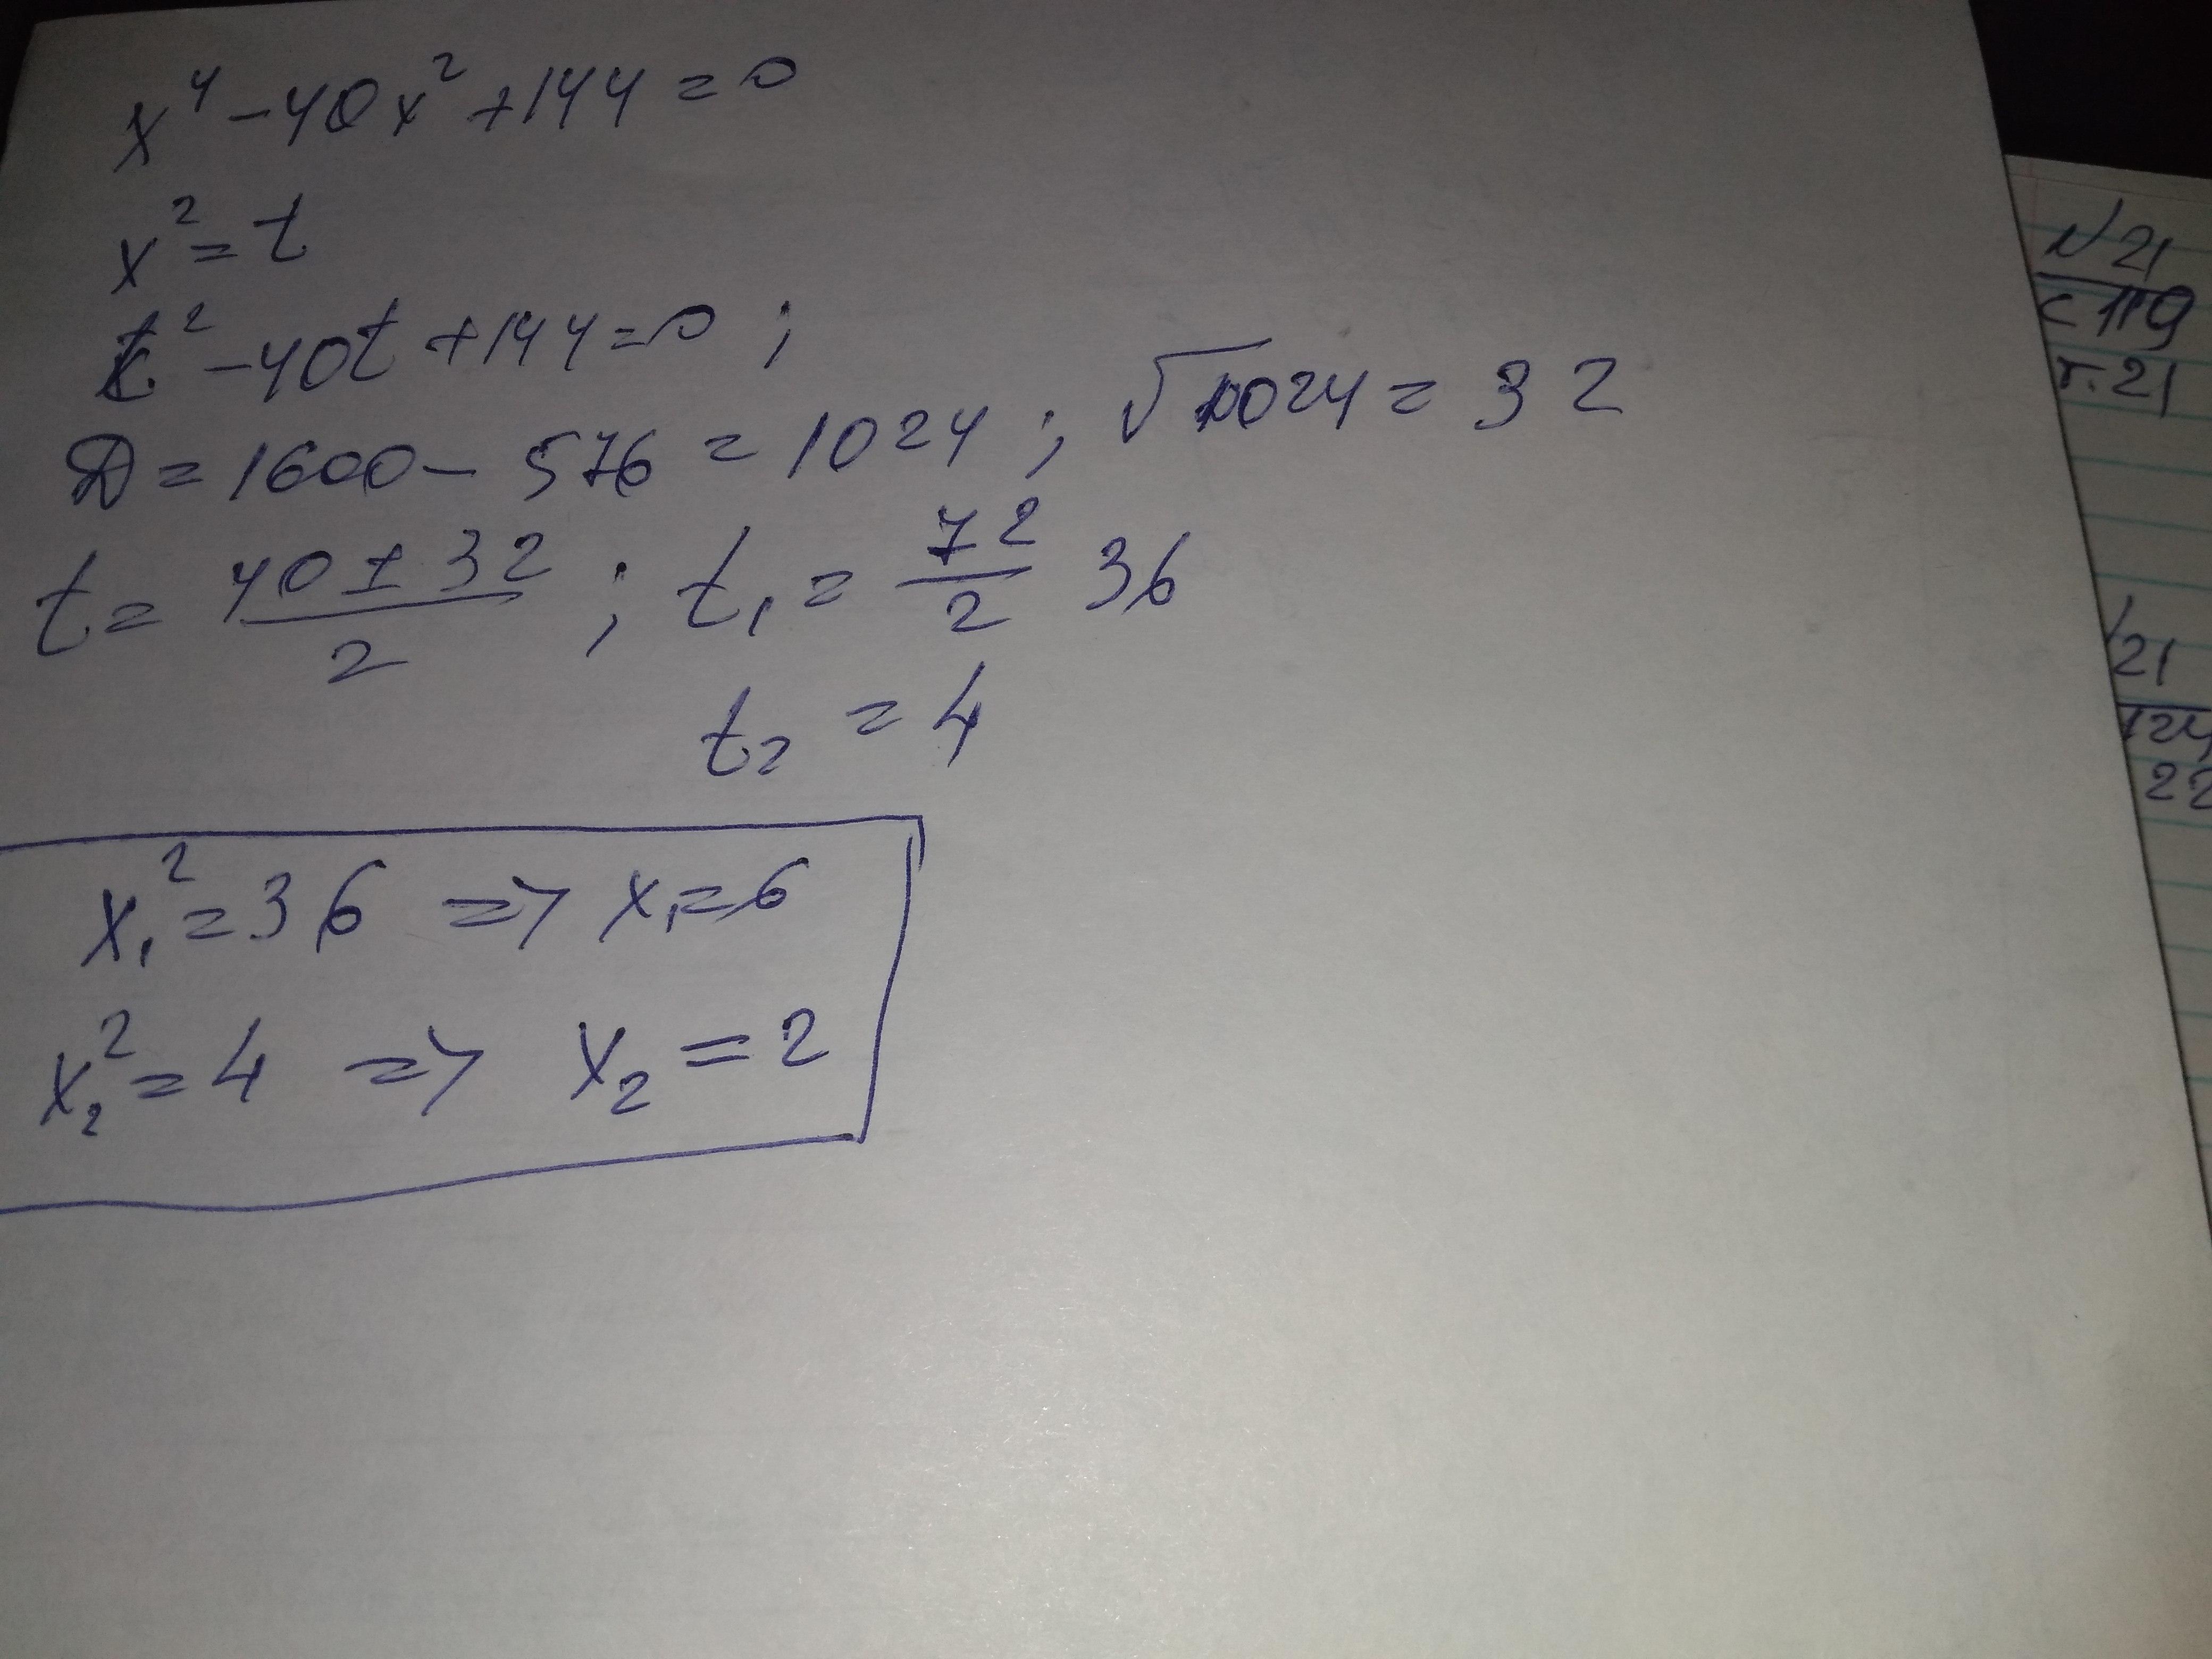 x⁴ - 40x² + 144 = 0
x² = t
t² - 40t + 144 = 0 ;
D = 1600 - 576 = 1024 ; √1024 = 32
t = (40 ± 32)/2 ; t₁ = 72/2 36
t₂ = 4
x₁² = 36 => x₁ = 6
x₂² = 4 => x₂ = 2
№21
с 119
т.21
21
124
22